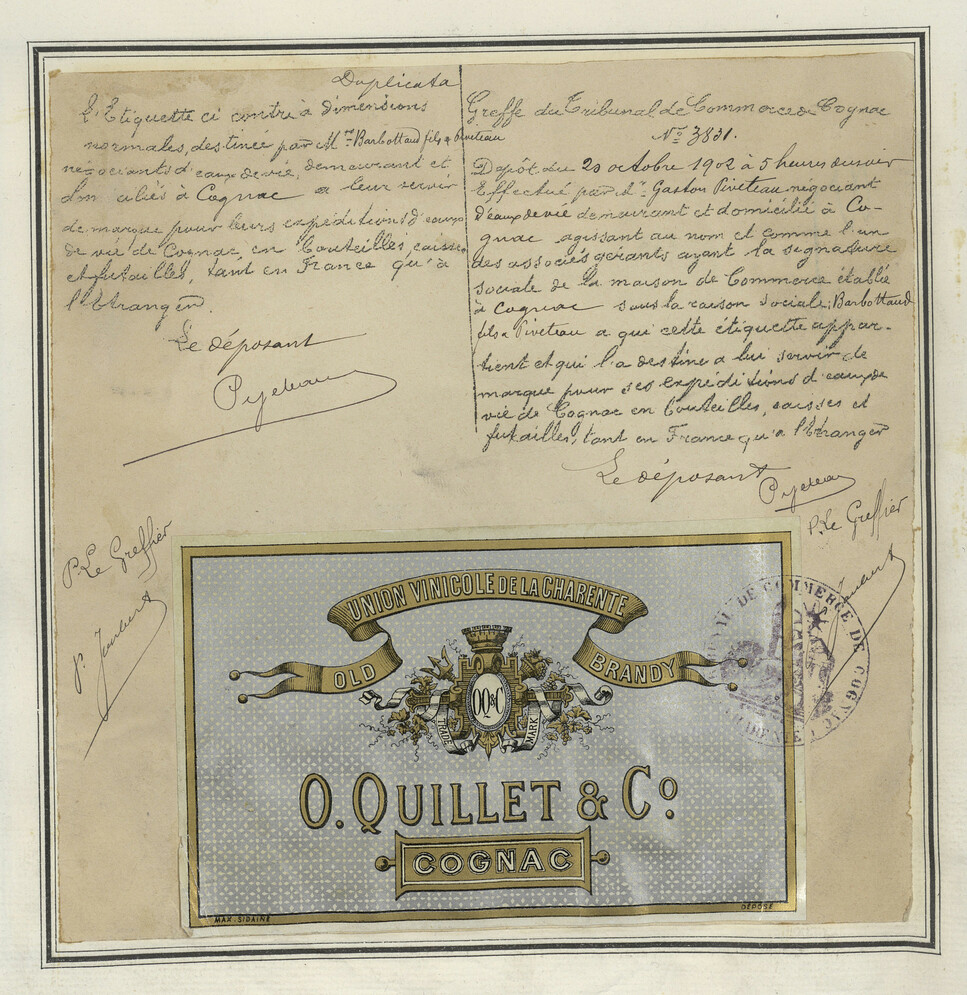 Duplicata
L'Etiquette ci contre à dimensions
normales, destinée par Mrs Barbottaud fils & Piveteau
négociants d'eaux de vie, demeurant et
domiciliés à Cognac a leur servir
de marque pour leurs expéditions d'eaux
de vie de Cognac en bouteilles, caisses
et futailles, tant en France qu'à
l'Etranger.
Le déposant
P. Le Greffier
Greffe du Tribunal de Commerce de Cognac
No 3831.
Depôt du 20 octobre 1902 à 5 heures du soir
Effectué par Mr Gaston Piveteau négociant
d'eaux de vie demeurant et domicilié à Co-
gnac agissant au nom et comme l'un
des associés gérants ayant la signature
sociale de la maison de Commerce établie
à Cognac sous la raison sociale; Barbottaud
fils & Piveteau a qui cette étiquette appar-
tient et qui l'a destine a lui servir de
marque pour ses expéditions d'eaux de
vie de Cognac en bouteilles, caisses et
futailles, tant en France qu'a l'Etranger
Le déposant
P. Le Greffier
UNION VINICOLE DE LA CHARENTE
OLD BRANDY
OQ&C
TRADE MARK
O. QUILLET & Co
COGNAC
MAX. SIDAINE
DÉPOSÉ
TRIBUNAL DE COMMERCE DE COGNAC